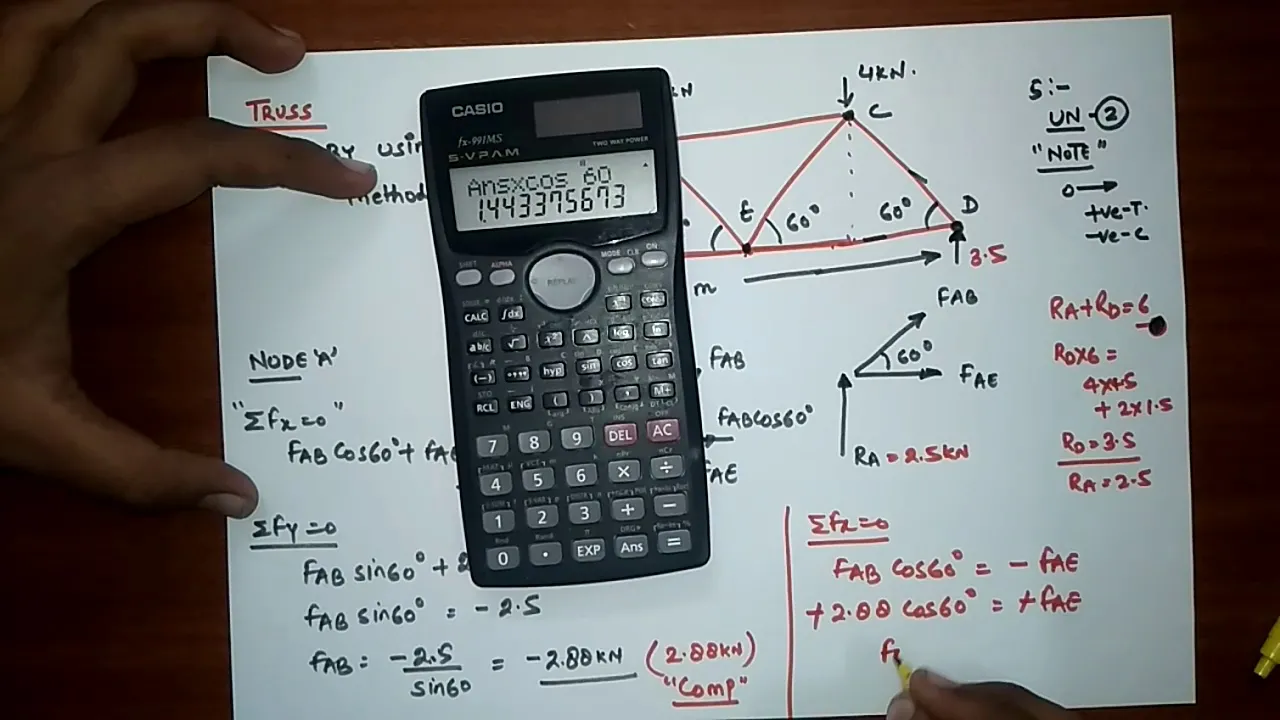 TRUSS
BY USIN
method
N
4KN.
C
E
60°
60°
D
3.5
m
S:-
UN-2
"NOTE"
+ve-T.
-ve-C
CASIO
fx-991MS
S-V.P.A.M.
TWO WAY POWER
Ans×cos 60
1.443375673
SHIFT
ALPHA
REPLAY
MODE CLR
ON
CALC
∫dx
log
ln
hyp
sin
cos
tan
RCL
ENG
(
)
,
M+
7
8
9
DEL
AC
4
5
6
×
÷
1
2
3
+
−
0
.
EXP
Ans
=
NODE 'A'
"Σfx=0"
fAB Cos60°+ fAE
fAB
fABCOS60°
AE
FAB
60°
FAE
RA = 2.5KN
RA+RD=6
RD×6 =
4×4.5
+ 2×1.5
RD=3.5
RA=2.5
Σfy=0
fAB sin60° + 2
fAB sin60° = -2.5
fAB = -2.5/sin60 = -2.88KN (2.88KN)
"Comp"
Σfx=0
fAB Cos60° = - fAE
+2.88 Cos60° = +fAE
f